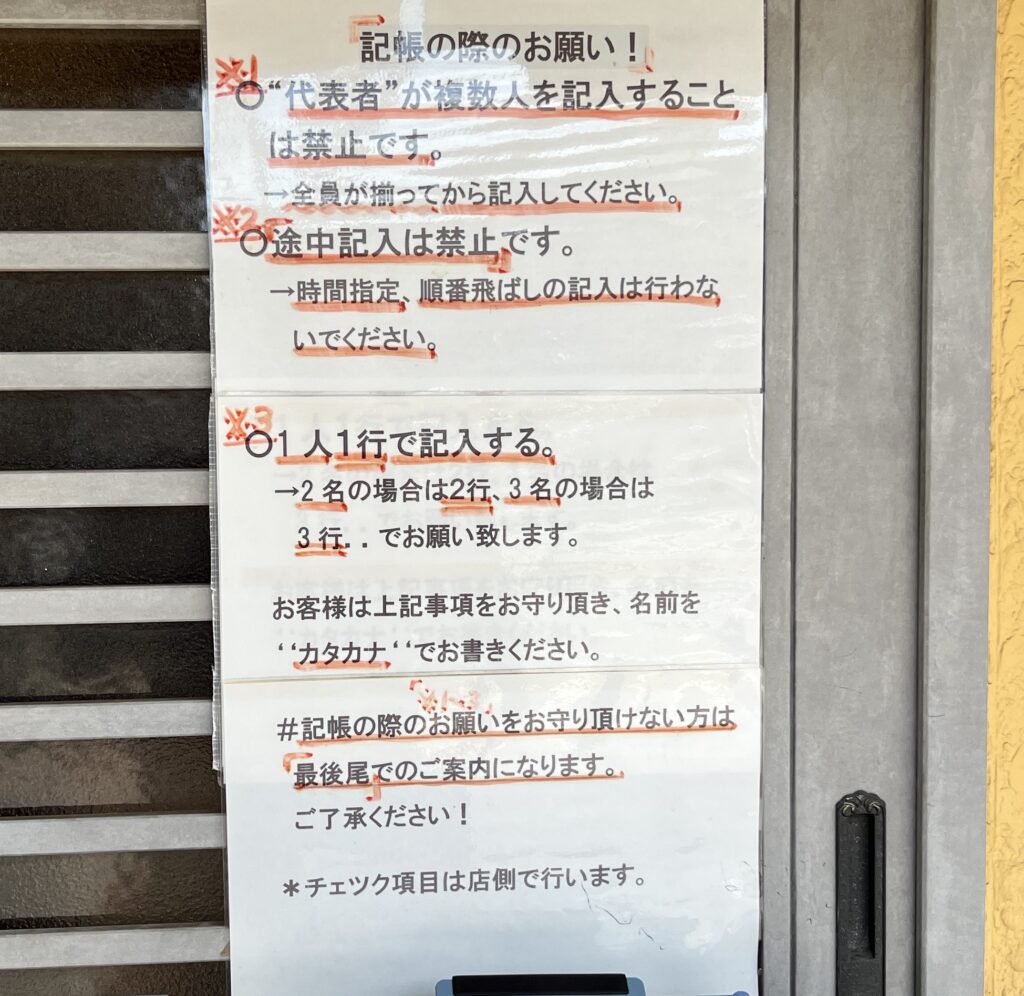 「記帳の際のお願い！」
※1
○“代表者”が複数人を記入すること
は禁止です。
→全員が揃ってから記入してください。
※2
○「途中記入は禁止」です。
→時間指定、順番飛ばしの記入は行わな
いでください。
※3
○1人1行で記入する。
→2名の場合は2行、3名の場合は
3行．．でお願い致します。
お客様は上記事項をお守り頂き、名前を
‘‘カタカナ‘‘でお書きください。
※1~3
＃記帳の際のお願いをお守り頂けない方は
「最後尾」でのご案内になります。
ご了承ください！
＊チェツク項目は店側で行います。